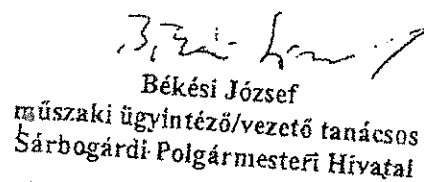 Békési József
műszaki ügyintéző/vezető tanácsos
Sárbogárdi Polgármesteri Hivatal